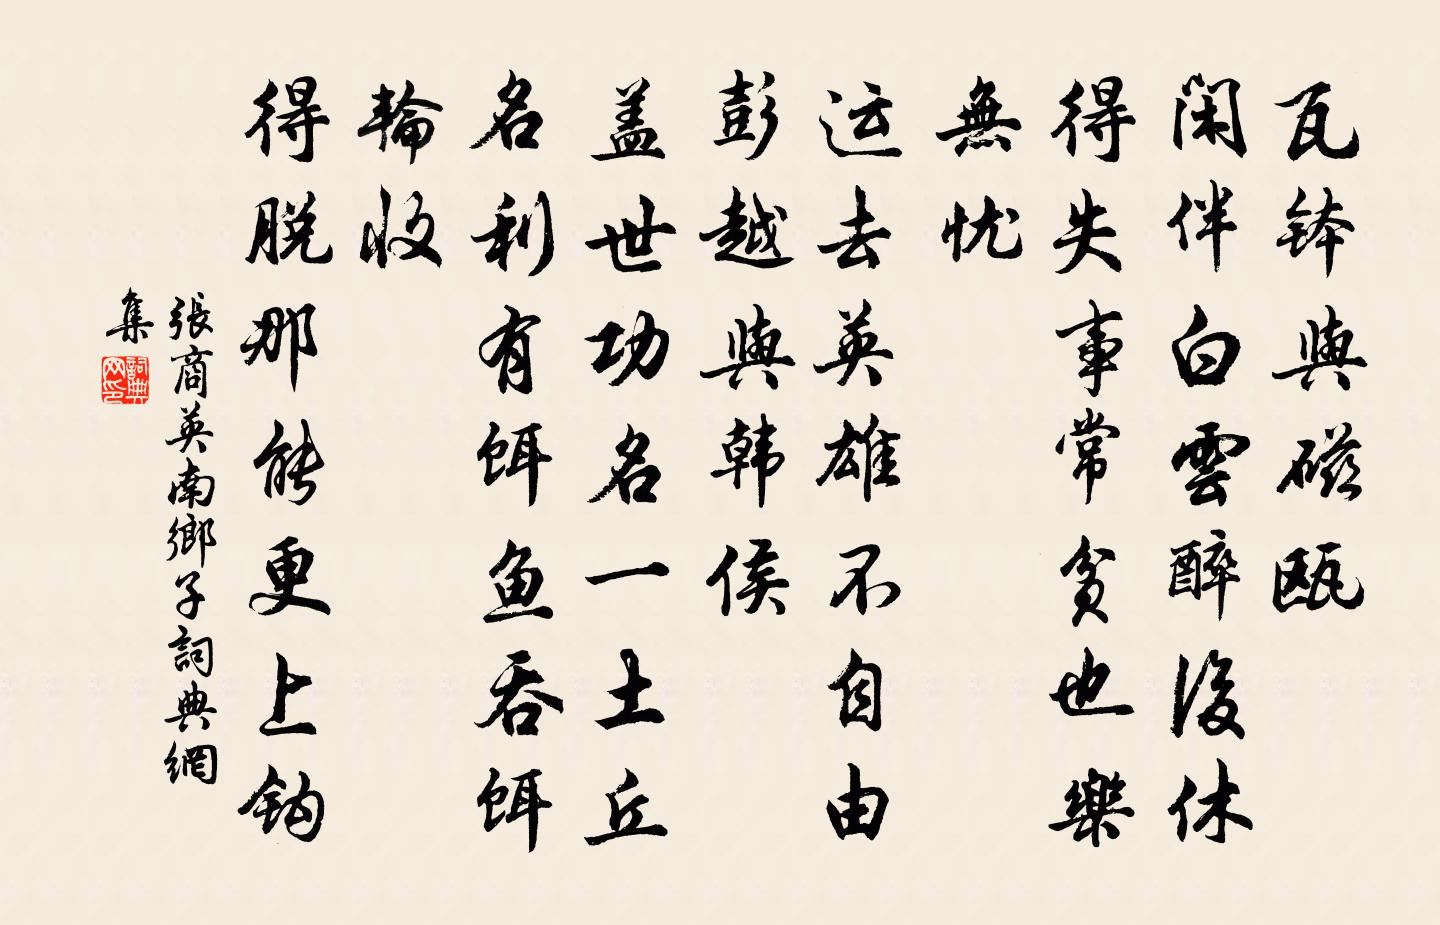 瓦鉢與磁瓯
闲伴白雲醉後休
得失事常貧也樂
無忧
运去英雄不自由
彭越與韩侯
盖世功名一土丘
名利有饵鱼吞饵
輪收
得脱那能更上钩
張商英南鄉子詞典網
集
詞典网印